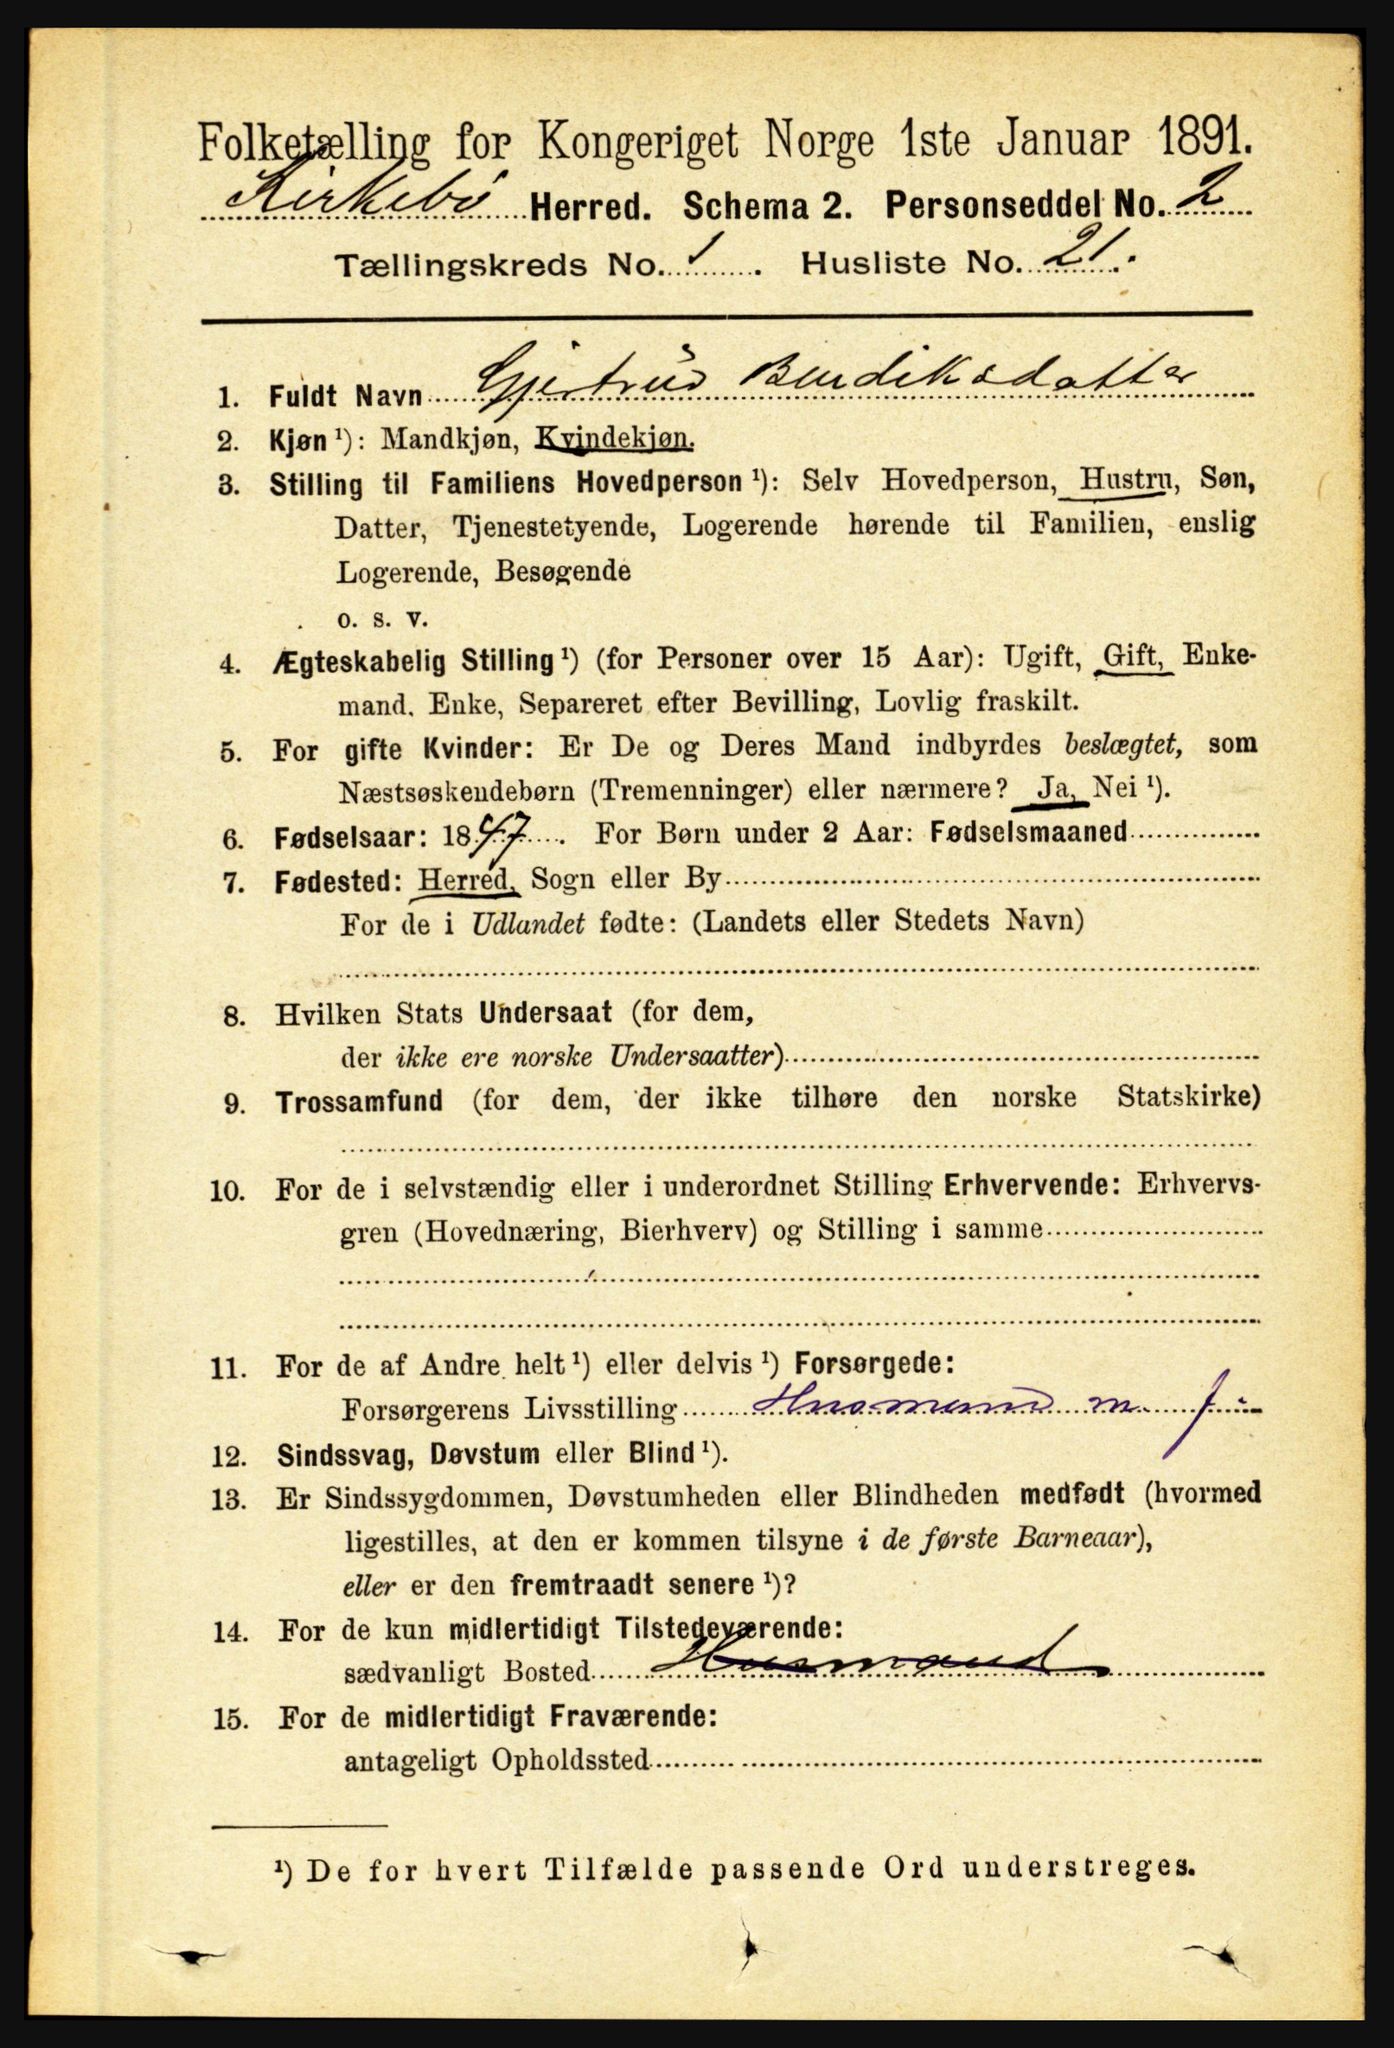 Folketælling for Kongeriget Norge 1ste Januar 1891.
Kirkebö Herred. Schema 2. Personseddel No. 2
Tællingskreds No. 1. Husliste No. 21.
1. Fuldt Navn Gjertrud Bendiksdatter
2. Kjøn ¹): Mandkjøn, Kvindekjøn.
3. Stilling til Familiens Hovedperson ¹): Selv Hovedperson, Hustru, Søn,
Datter, Tjenestetyende, Logerende hørende til Familien, enslig
Logerende, Besøgende
o. s. v.
4. Ægteskabelig Stilling ¹) (for Personer over 15 Aar): Ugift, Gift, Enke-
mand, Enke, Separeret efter Bevilling, Lovlig fraskilt.
5. For gifte Kvinder: Er De og Deres Mand indbyrdes beslægtet, som
Næstsøskendebørn (Tremenninger) eller nærmere? Ja, Nei ¹).
6. Fødselsaar: 1847. For Børn under 2 Aar: Fødselsmaaned
7. Fødested: Herred, Sogn eller By
For de i Udlandet fødte: (Landets eller Stedets Navn)
8. Hvilken Stats Undersaat (for dem,
der ikke ere norske Undersaatter)
9. Trossamfund (for dem, der ikke tilhøre den norske Statskirke)
10. For de i selvstændig eller i underordnet Stilling Erhvervende: Erhvervs-
gren (Hovednæring, Bierhverv) og Stilling i samme
11. For de af Andre helt ¹) eller delvis ¹) Forsørgede:
Forsørgerens Livsstilling Husmand m. j.
12. Sindssvag, Døvstum eller Blind ¹).
13. Er Sindssygdommen, Døvstumheden eller Blindheden medfødt (hvormed
ligestilles, at den er kommen tilsyne i de første Barneaar),
eller er den fremtraadt senere ¹)?
14. For de kun midlertidigt Tilstedeværende:
sædvanligt Bosted Husmand
15. For de midlertidigt Fraværende:
antageligt Opholdssted
¹) De for hvert Tilfælde passende Ord understreges.